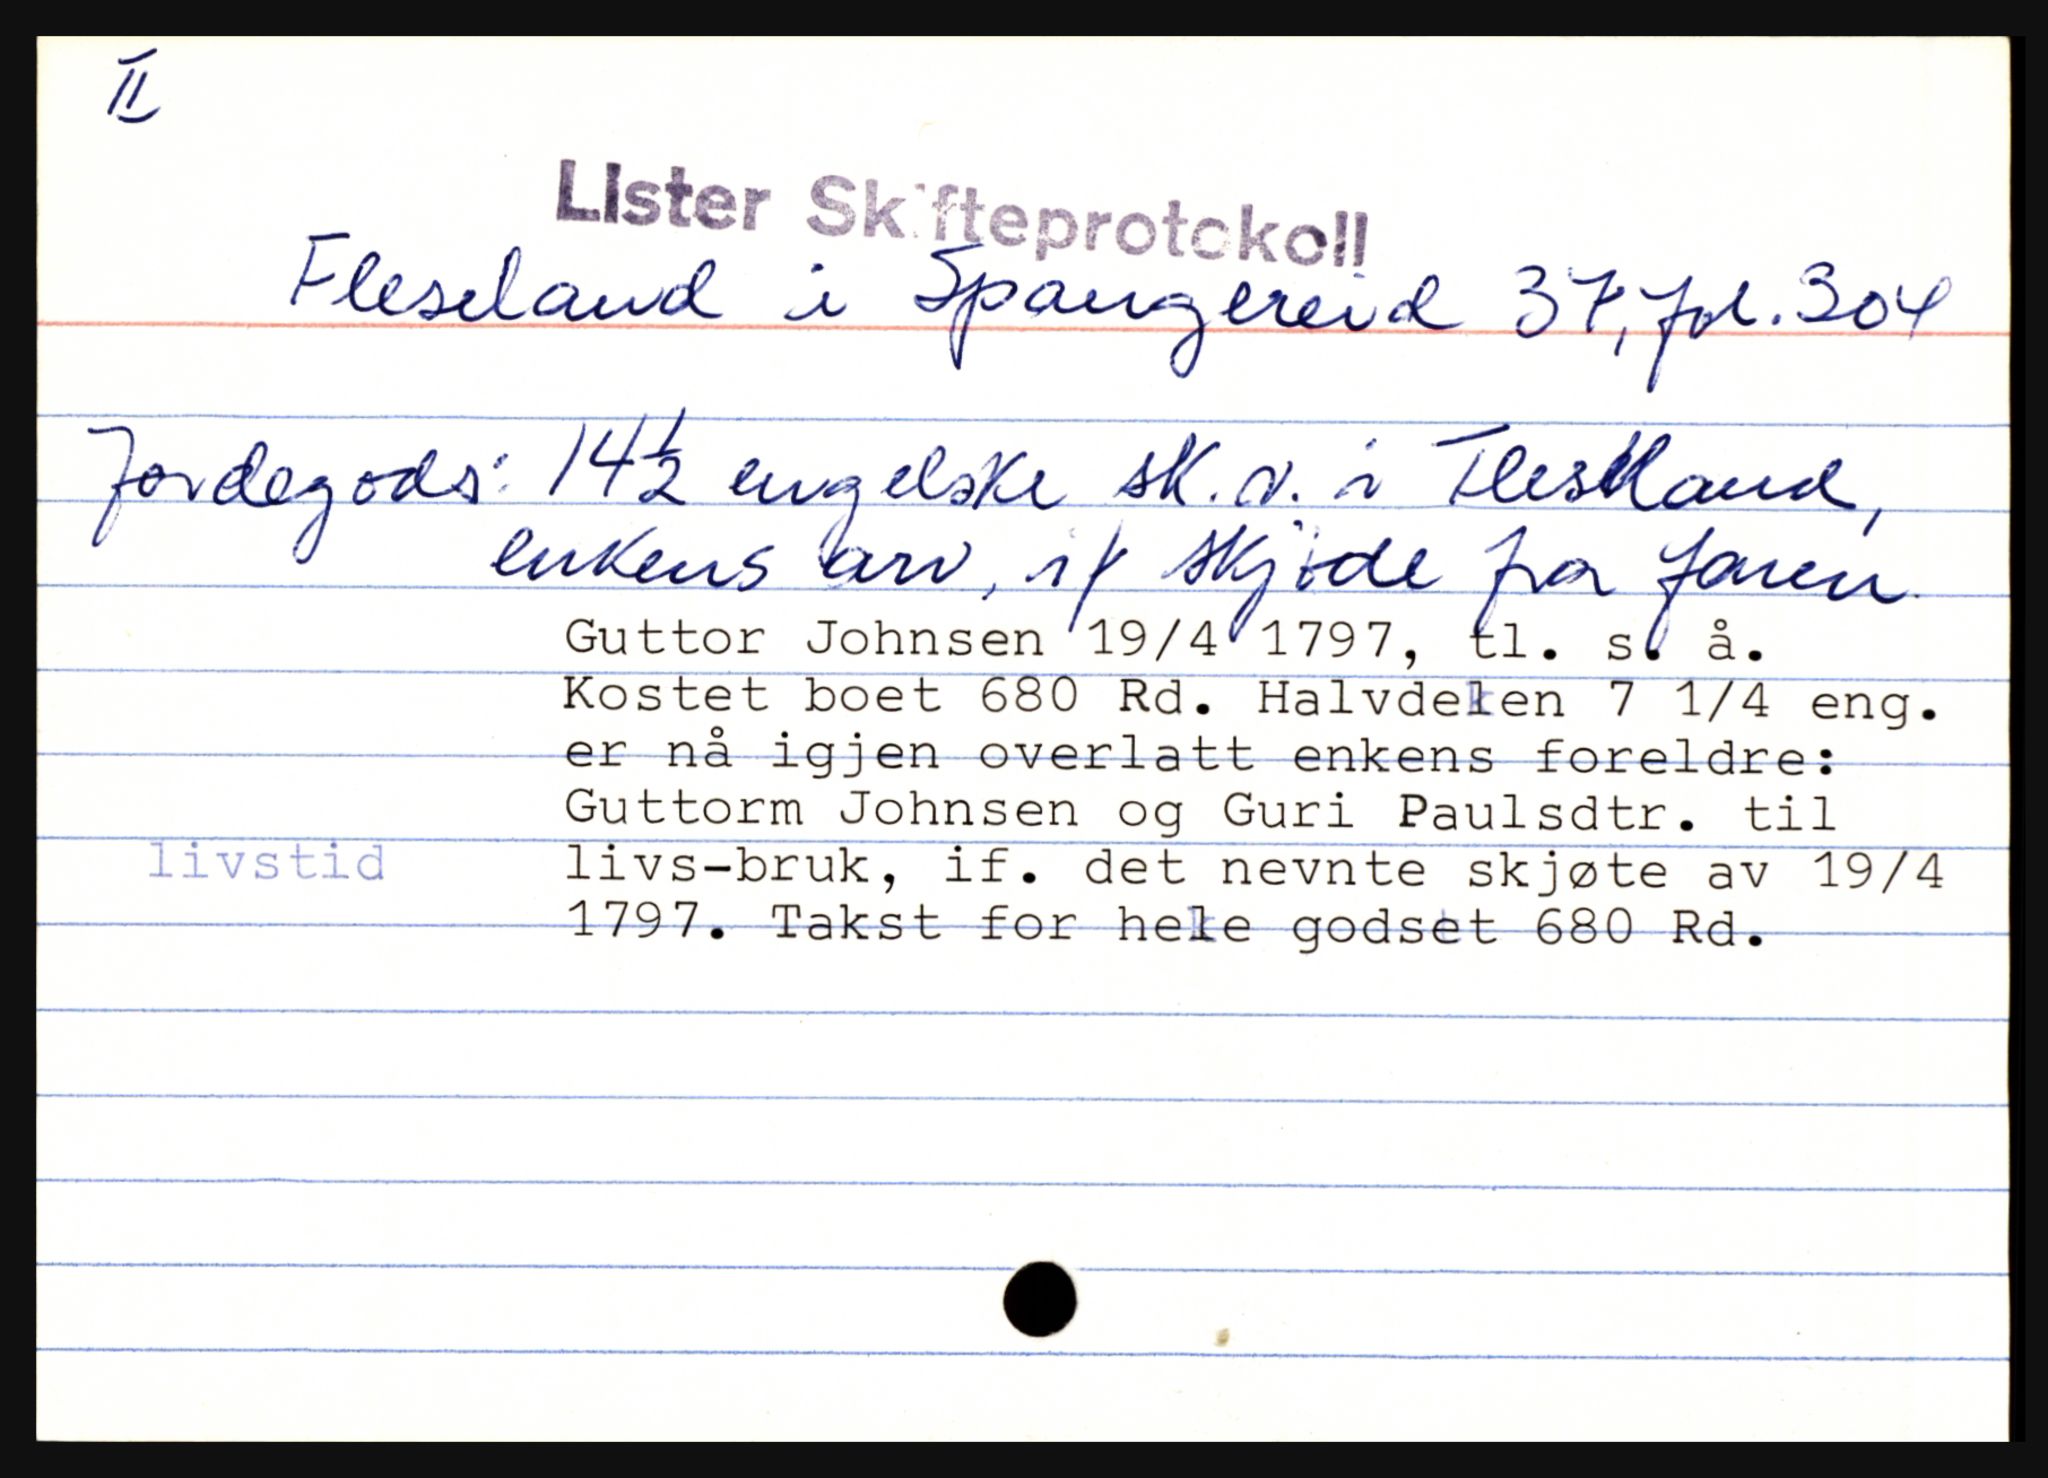 II
Lister Skifteprotokoll
Fleseland i Spangereid 37, fol. 304
Jordegods: 14½ engelske sk. v. i Fleseland,
enkens arv, if skjøde fra faren
Guttor Johnsen 19/4 1797, tl. s. å.
Kostet boet 680 Rd. Halvdelen 7 1/4 eng.
er nå igjen overlatt enkens foreldre:
Guttorm Johnsen og Guri Paulsdtr. til
livstid livs-bruk, if. det nevnte skjøte av 19/4
1797. Takst for hele godset 680 Rd.